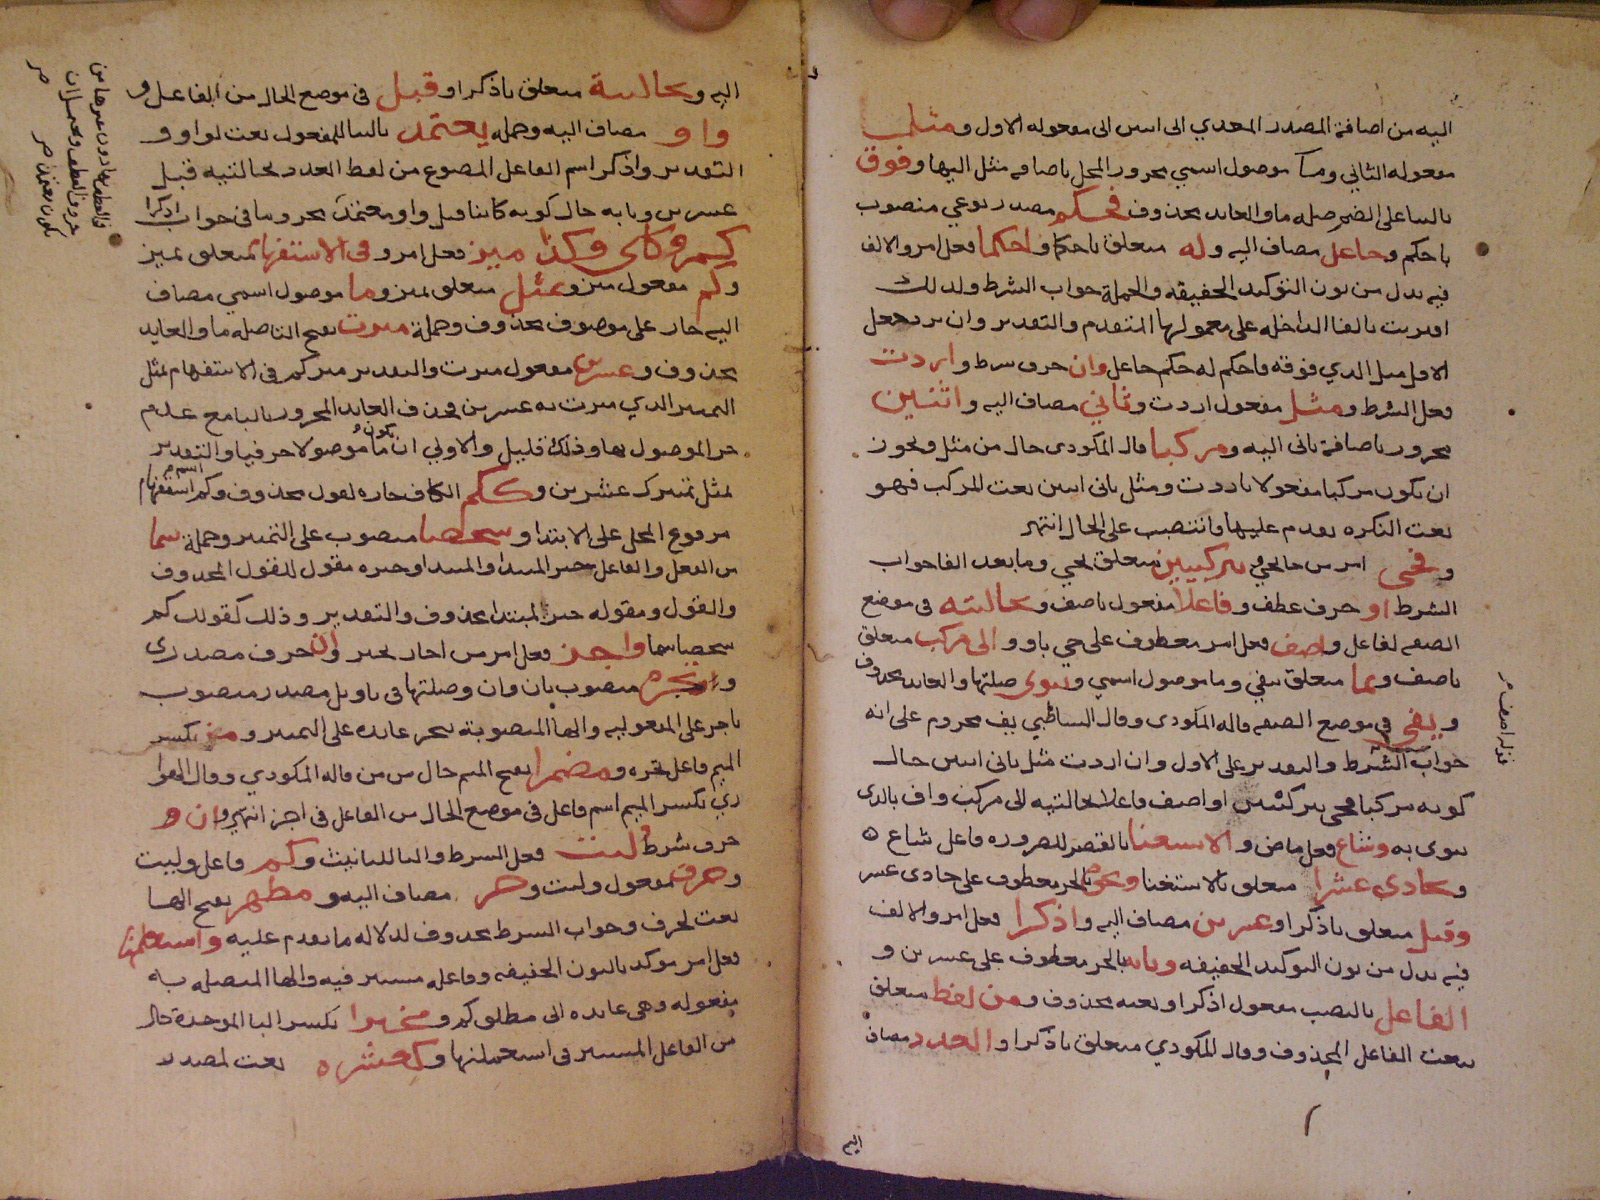 اليه من اضافة المصدر المعدي الى اسن الى مفعوله الاول ومثلـ
مفعوله الثاني وما موصول اسمي مجرور المحل باضافه مثل اليها وفوق
بالبنا على الضم صله ما والعايد محذوف فحكم مصدر نوعي منصوب
باحكم وجاعل مضاف اليه وله متعلق باحكما واحكما فعل امر والالف
فيه بدل من نون التوكيد الخفيفه والجملة جواب الشرط ولذلك
اقترنت بالفا الداخله على معمولها المتقدم والتقدير وان ترد جعل
الاقل مثل الذي فوقه فاحكم له حكم جاعل وان حرف شرط واردت
فعل الشرط ومثل مفعول اردت وثاني مضاف اليه واثنين
مجرور باضافة ثاني اليه ومركبا قال المكودى حال من مثل ويجوز
ان يكون مركبا مفعولا باردت ومثل ثاني اسن نعت المركب فهو
نعت النكره تقدم عليها فانتصب على الحال انتهى
وفجى امر من جا يجي وبتركيبين متعلق بجي وما بعد الفا جواب
الشرط او حرف عطف وفاعلا مفعول باضف وبحالتيه في موضع
الصفه لفاعل واضف فعل امر معطوف على جي باو والى مركب متعلق
باضف وبما متعلق بيفي وما موصول اسمي وتنوى صلتها والعايد محذوف
ويفى في موضع الصفه قاله المكودى وقال الشاطبي يف مجزوم على انه
جواب الشرط والتقدير على الاول وان اردت مثل ثانى اسن حال
كونه مركبا فجى بتركيبين او اضف فاعلا بحالتيه الى مركب واف بالذى
تنوى به وشاع فعل ماض والاستغنا بالقصر للضروره فاعل شاع
وبحادى عشرا متعلق بالاستغنا ونحوه بالجر معطوف على حادى عشر
وقبل متعلق باذكرا وعشرين مضاف اليه واذكرا فعل امر والالف
فيه بدل من نون التوكيد الخفيفه وبابه بالجر معطوف على عشرين و
الفاعل بالنصب مفعول اذكرا ونعته محذوف ومن لفظ متعلق
بنعت الفاعل المحذوف وقال المكودي متعلق باذكرا والعدد مضاف
اليه
فذلـ اضف
اليه وبحالتيه متعلق باذكرا وقبل في موضع الحال من الفاعل و
واو مضاف اليه وجمله يعتمد بالبنا للمفعول نعت لواو و
التقدير واذكرا اسم الفاعل المصوغ من لفظ العدد بحالتيه قبل
عشرين وبابه حال كونه كاينا قبل واو يعتمد مجر وما في جواب اذكرا
كم وكاى وكذا ميز فعل امر وفي الاستفهام متعلق بميز
وكم مفعول ميز وبمثل متعلق بميز وما موصول اسمي مضاف
اليه جار على موصوف محذوف وجملة ميزت بفتح التا صله ما والعايد
محذوف وعشرين مفعول ميزت والتقدير ميز كم في الاستفهام بمثل
التميز الذي ميزت به عشرين فحذف العايد المجرور بالبا مع عدم
جر الموصول بها وذلك قليل والاولي ان يكون ما موصولا حرفيا والتقدير
بمثل تميزك عشرين وككم الكاف جاره لقول محذوف وكم اسم استفهام
مرفوع المحل على الابتدا وشخصا منصوب على التميز وجملة سما
من الفعل والفاعل خبر المبتدا والمبتدا وخبره مقول للقول المحذوف
والقول ومقوله خبر المبتدا محذوف والتقدير وذلك كقولك كم
شخصا سما واجز فعل امر من اجاز يجيز وان حرف مصدرى
وتجره منصوب بان وان وصلتها في تاويل مصدر منصوب
باجز على المفعوليه والها المنصوبة بتجر عايده على التميز ومن بكسر
الميم فاعل تجره ومضمرا بفتح الميم حال من من قاله المكودي وقال الهوا
ري بكسر الميم اسم فاعل في موضع الحال من الفاعل في اجز انتهى وان و
حرف شرط وليت فعل الشرط والتا للتانيث وكم فاعل وليت
وحرف مفعول وليت وجر مضاف اليه ومظهر بفتح الها
نعت لحرف وجواب الشرط محذوف لدلاله ما تقدم عليه واستعملنها
فعل امر موكد بالنون الخفيفه وفاعله مستتر فيه والها المتصله به
مفعوله وهي عايده الى مطلق كم ومخبرا بكسر البا الموحدة حال
من الفاعل المستتر في استعملنها وكعشره نعت لمصدر